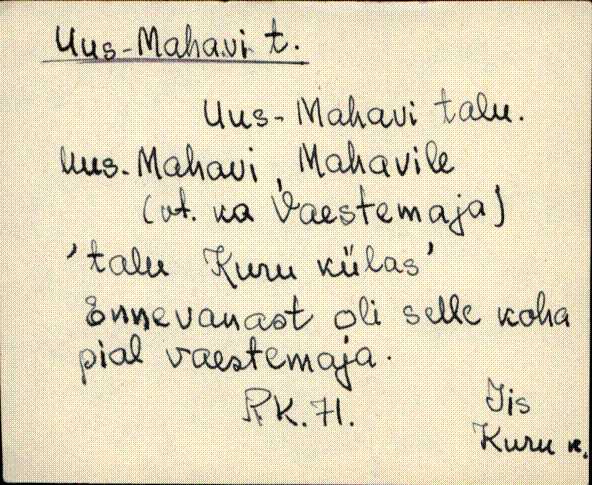 Uus-Mahavi t.
Uus-Mahavi talu.
Uus-Mahavi, Mahavile
(vt. ka Vaestemaja)
'talu Kuru külas'
Ennevanast oli selle koha
pial vaestemaja.
RK. 71.
Iis
Kuru k.